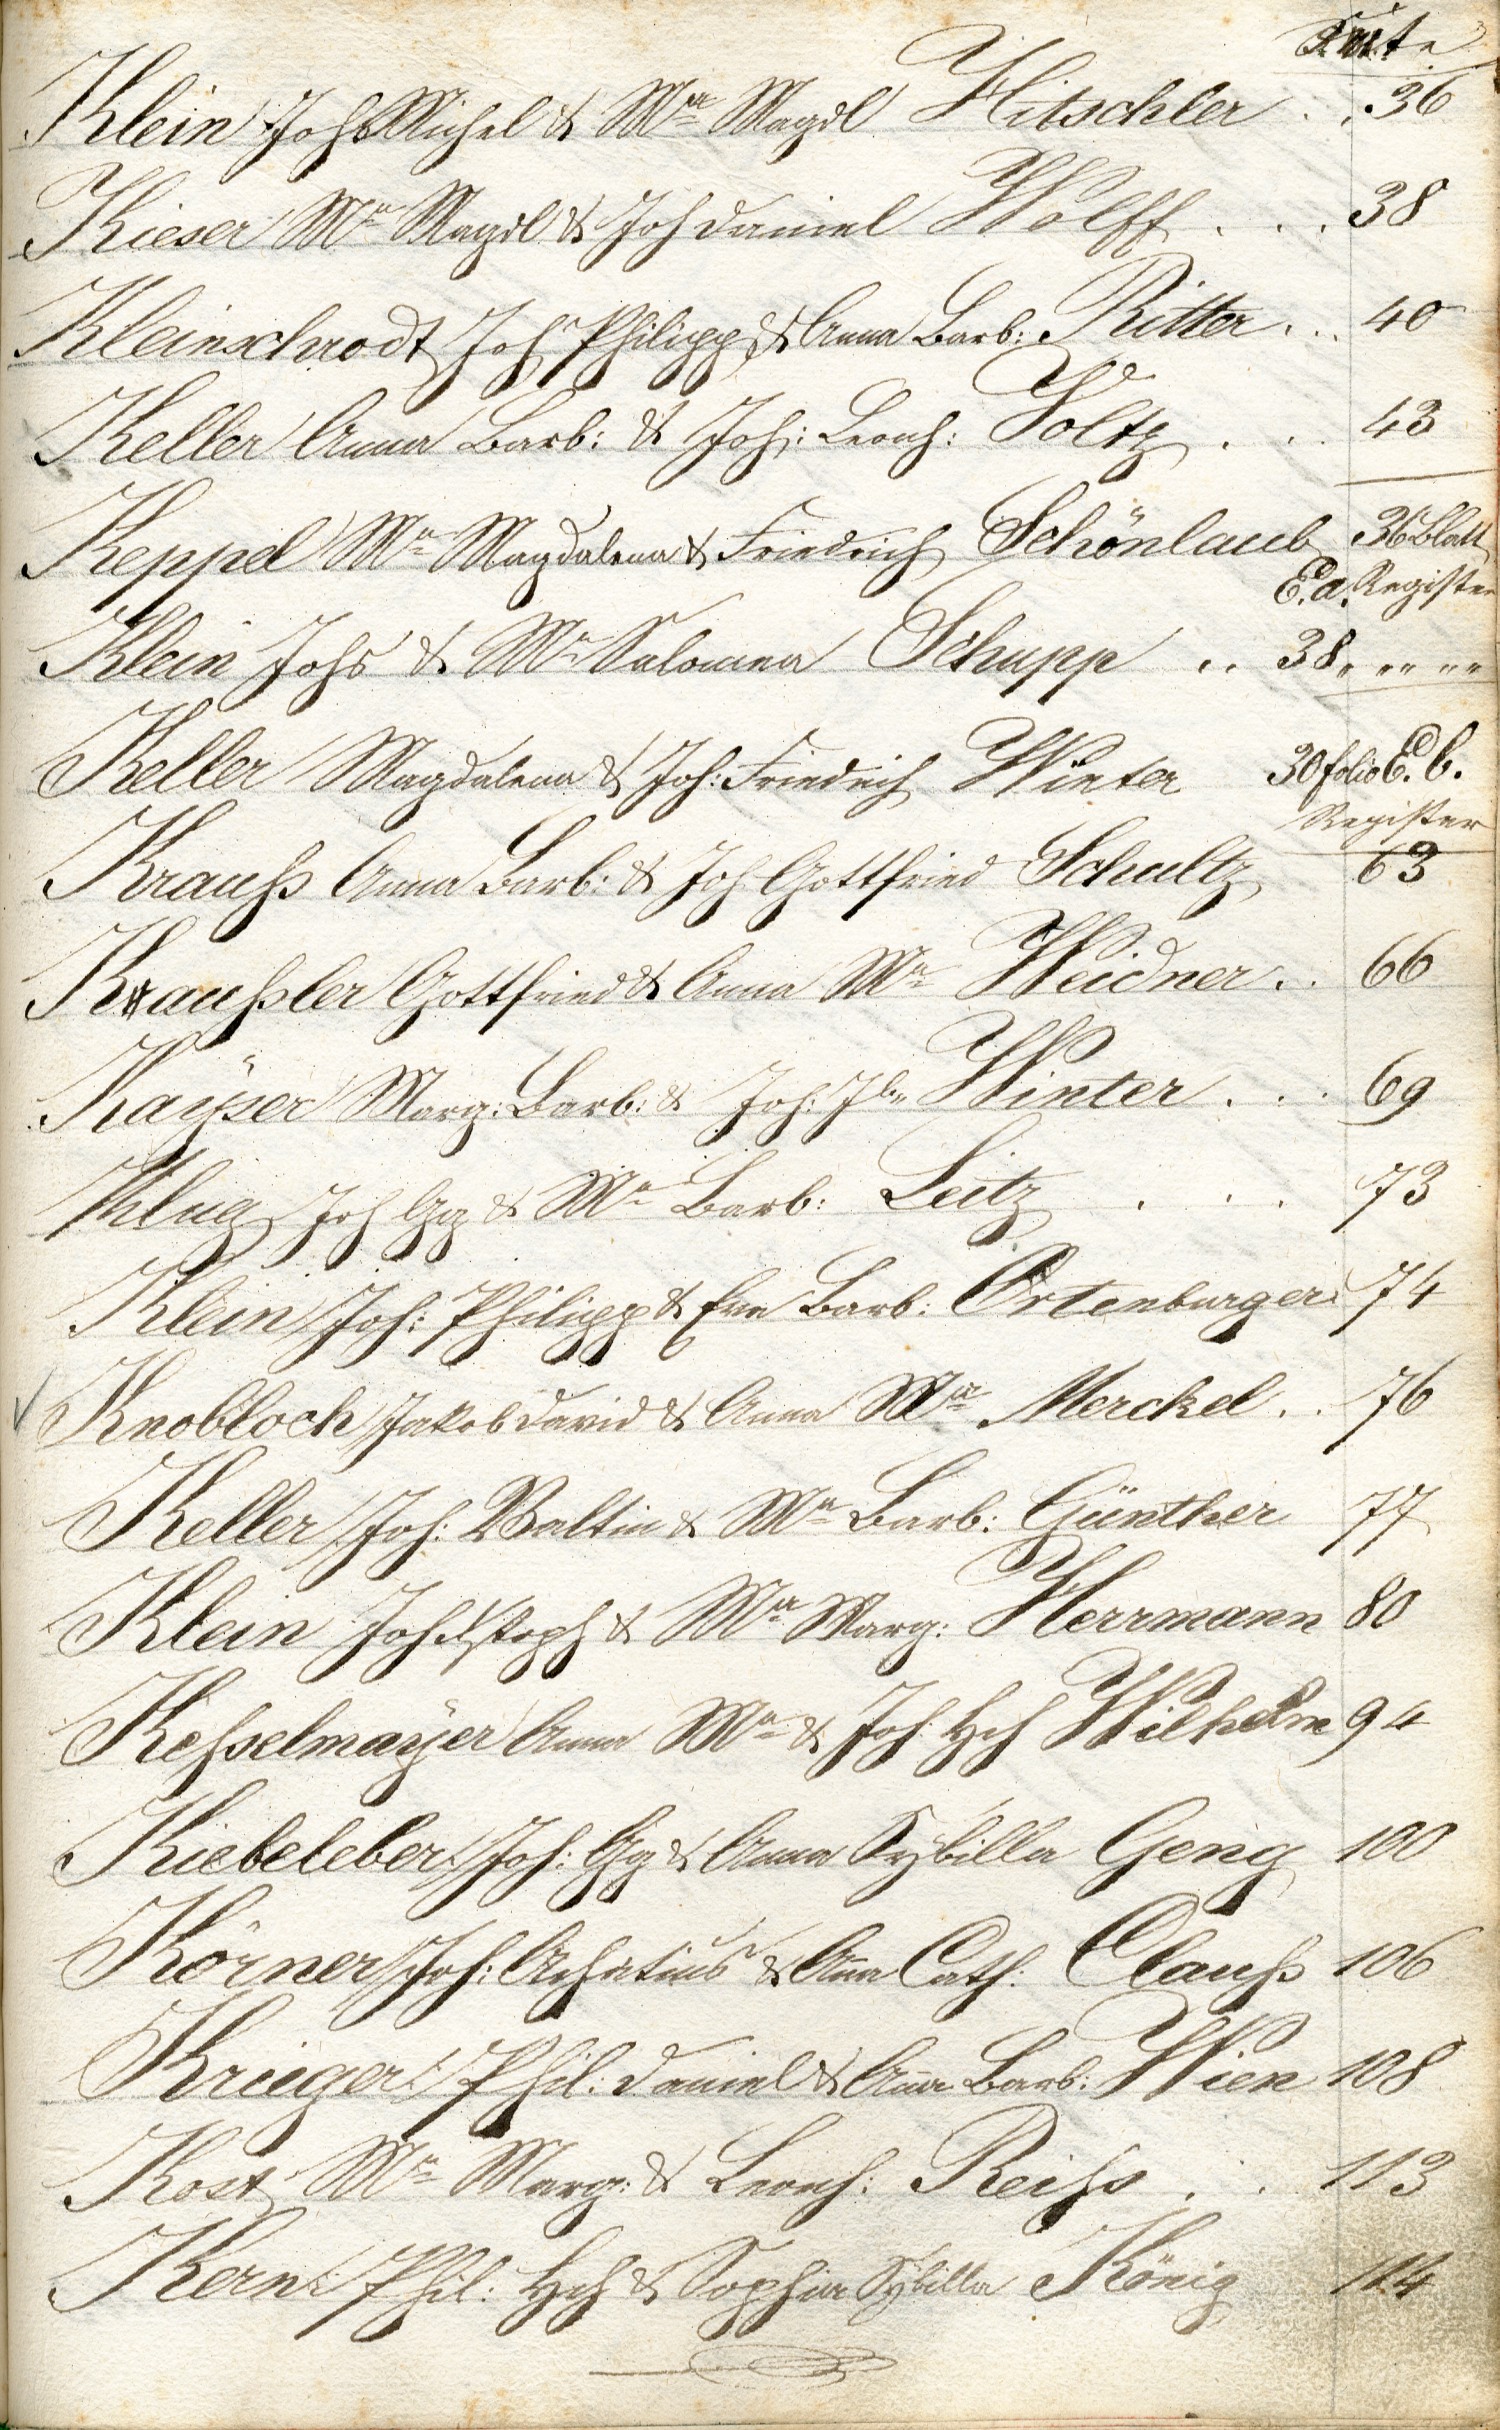 Seite
Klein Johs Michel & Mra Magdl Hitschler . . 36
Kieser Mra Magdl & Joh Daniel Wolff . . . 38
Kleinschrodt Joh Philipp & Anna Barb: Ritter . . 40
Keller Anna Barb: & Joh: Leonh: Voltz . . . 43
Keppel Mra Magdalena & Friedrich Schönlaub 36 Blatt
E.a. Register
Klein Johs & Mra Salomea Schupp .. 38 " " " " "
Keller Magdalena & Joh: Friedrich Winter 30 folio E. b.
Register
Krauß Anna Barb: & Joh Gottfried Schultz 63
Kraußler Gottfried & Anna Mra Weidner . . 66
Kaÿser Marg: Barb: & Joh: Winter . . . 69
Klug Joh Gg & Mra Barb: Leitz . . . 73
Klein Joh: Philipp & Eva Barb: Ortenburger 74
Knobloch Jakob David & Anna Mra Merckel . . 76
Keller Joh: Valtin & Mra Barb: Günther 77
Klein Joh Xstoph & Mra Marg: Herrmann 80
Keßelmaÿer Anna Mra & Joh Hch Wilhelm 94
Kiebeleber Joh: Gg & Anna Sybilla Geng 100
Körner Joh: Achatius & Ana Cath: Clauß 106
Krieger Phil: Daniel & Ana Barb: Wien 108
Kost Mra Marg: & Leonh: Reiß . . 113
Kern Phil: Hch & Sophia Sybilla König 114